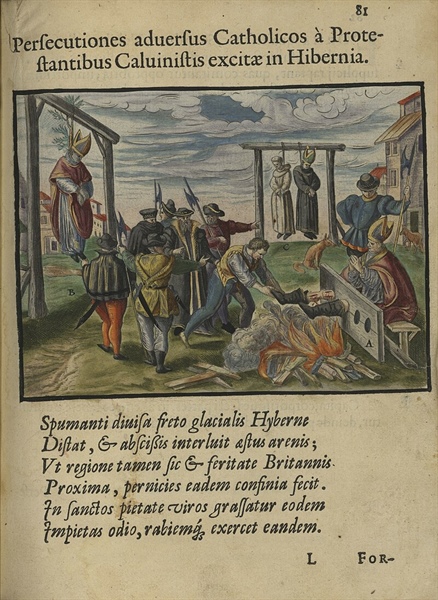 81
Persecutiones aduersus Catholicos à Prote-
stantibus Caluinistis excitæ in Hibernia.
B
A
Spumanti diuisa freto glacialis Hyberne
Distat, & abscissis interluit æstus arenis;
Vt regione tamen sic & feritate Britannis
Proxima, pernicies eadem confinia fecit.
In sanctos pietate viros grassatur eodem
Impietas odio, rabiemq́; exercet eandem.
L FOR-